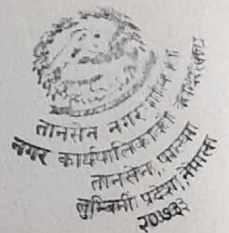 तानसेन नगरपालिका
नगर कार्यपालिकाको कार्यालय
तानसेन, पाल्पा
लुम्बिनी प्रदेश, नेपाल
२०७३